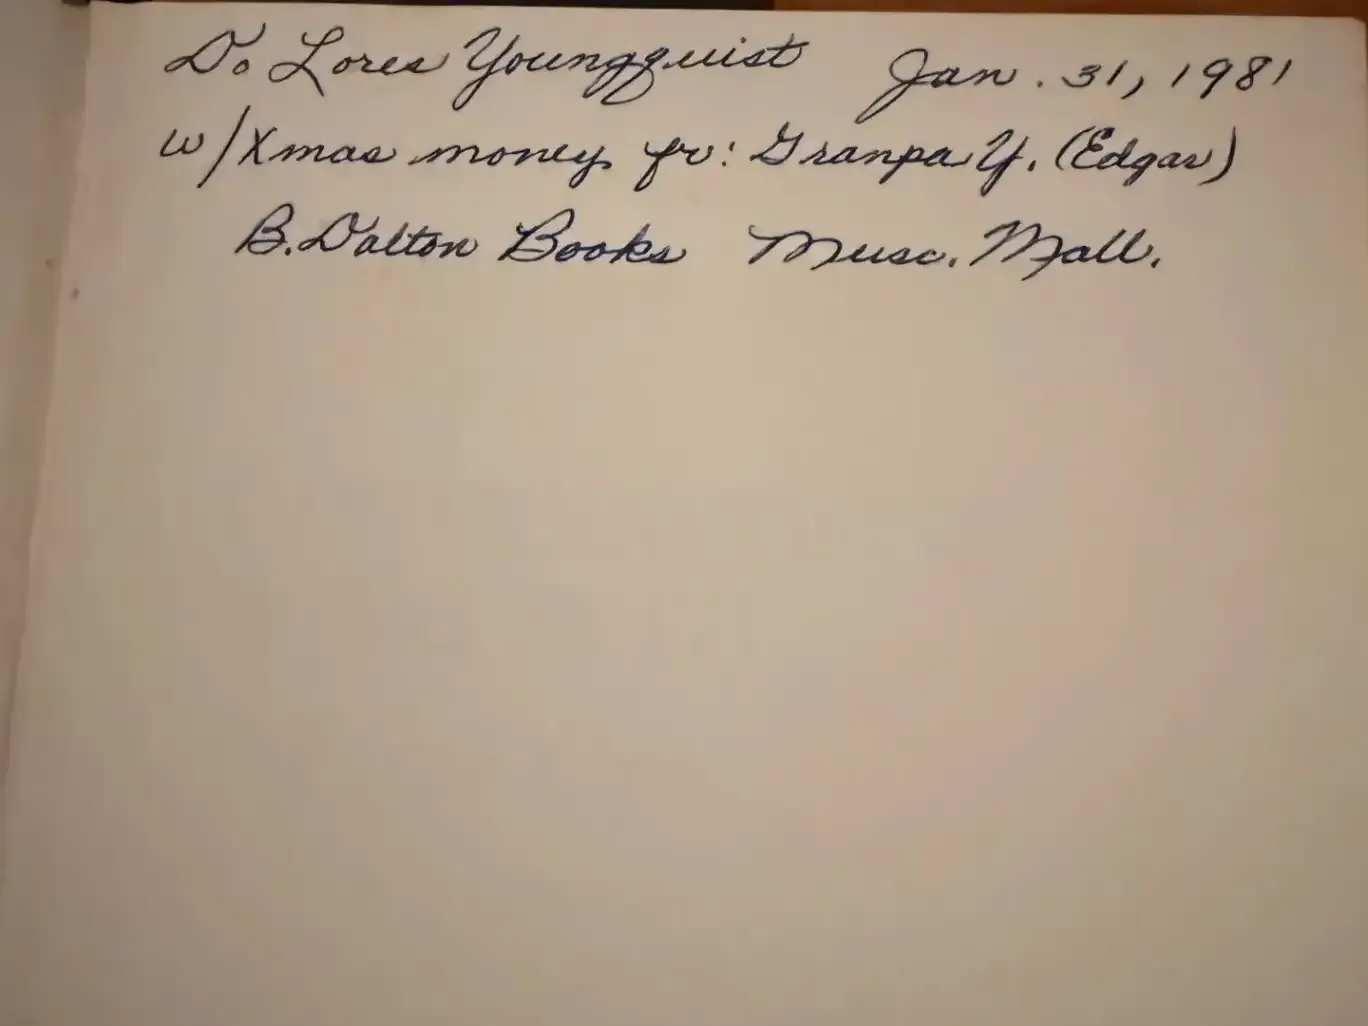 Do Lores Youngquist Jan. 31, 1981
w/Xmas money fr: Granpa Y. (Edgar)
B. Dalton Books Musc. Mall.